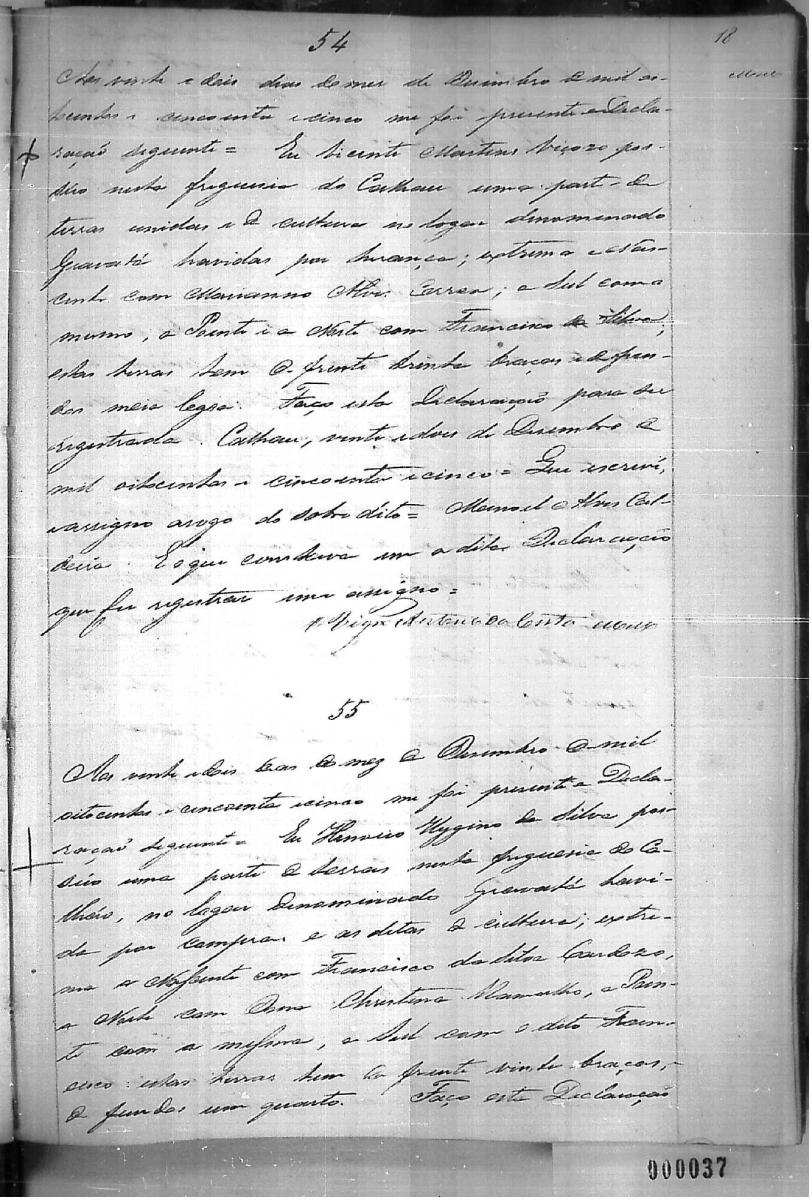 54
18
Aos vinte e dois dias do mez de Dezembro de mil oi-
tocentos e cincoenta e cinco me foi presente a Decla-
ração seguinte = Eu Vicente Martins Viçozo pos-
súo nesta freguesia do Calhau uma parte de
terras unidas e de cultura no logar denominado
Gravatá havidas por herança; extrema a Nas-
cente com Marianno Alves Correa; a Sul com o
mesmo, a Poente e a Norte com Francisco da Silva;
estas terras tem de frente trinta braças e de fun-
dos meia legoa. Faço esta Declaração para ser
registrada. Calhau, vinte e dois de Dezembro de
mil oitocentos e cincoenta e cinco = Que escrevi,
e assigno a rogo do sobredito = Manoel Alves Cal-
deira. E o que constava em a dita Declaração
que fiz registrar e me assigno =
O Vigro Antonio da Costa
55
Aos vinte e dois dias do mez de Dezembro de mil
oitocentos e cincoenta e cinco me foi presente a Decla-
ração seguinte = Eu Hygino da Silva pos-
súo uma parte de terras nesta freguesia do Ca-
lháo, no logar denominado Gravatá havi-
da por compra e as ditas de cultura; extre-
ma a Nascente com Francisco da Silva Cardozo,
a Norte com Anna Christina Ramalho, a Poen-
te com a mesma, a Sul com o dito Fran-
cisco: estas terras tem de frente vinte braças,
de fundos um quarto. Faço esta Declaração
000037